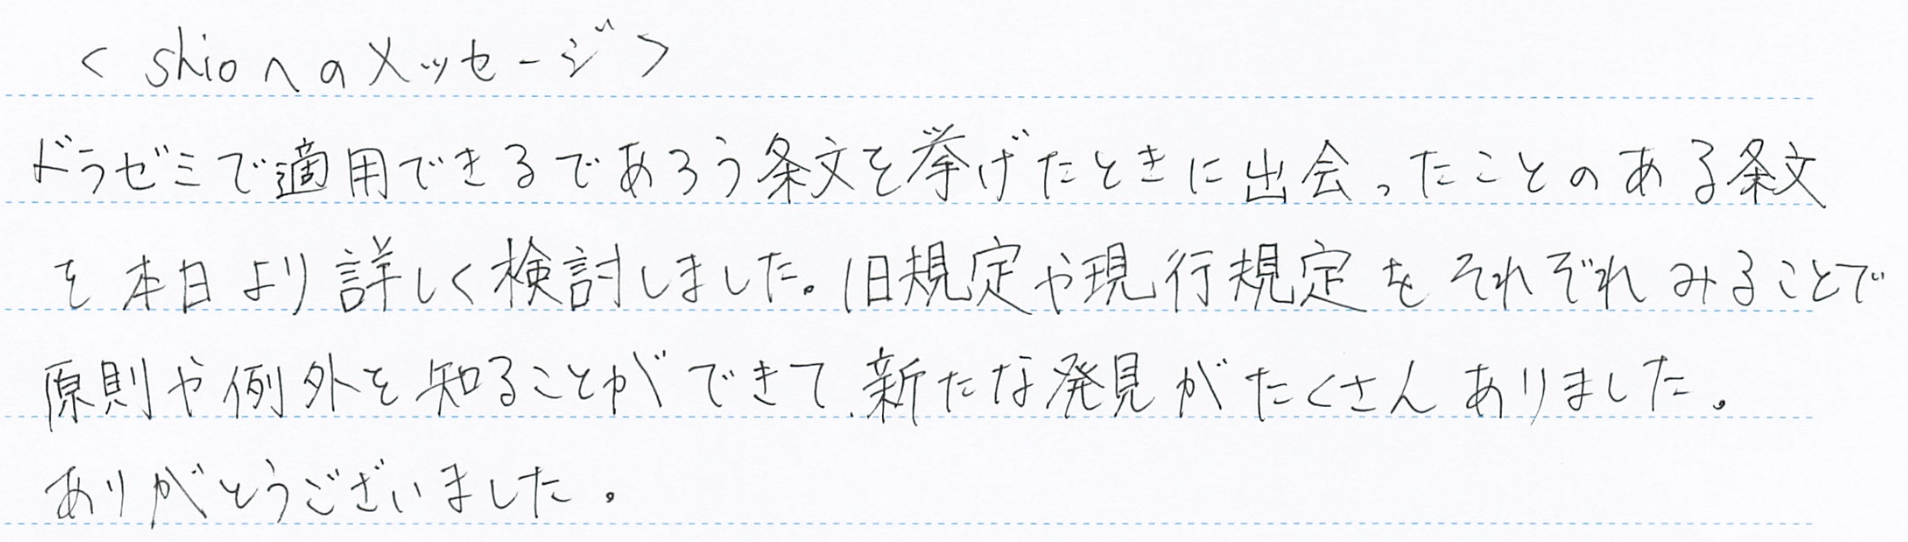 < shioへのメッセージ >
ドラゼミで適用できるであろう条文を挙げたときに出会ったことのある条文
を本日より詳しく検討しました。旧規定や現行規定をそれぞれみることで
原則や例外を知ることができて、新たな発見がたくさんありました。
ありがとうございました。